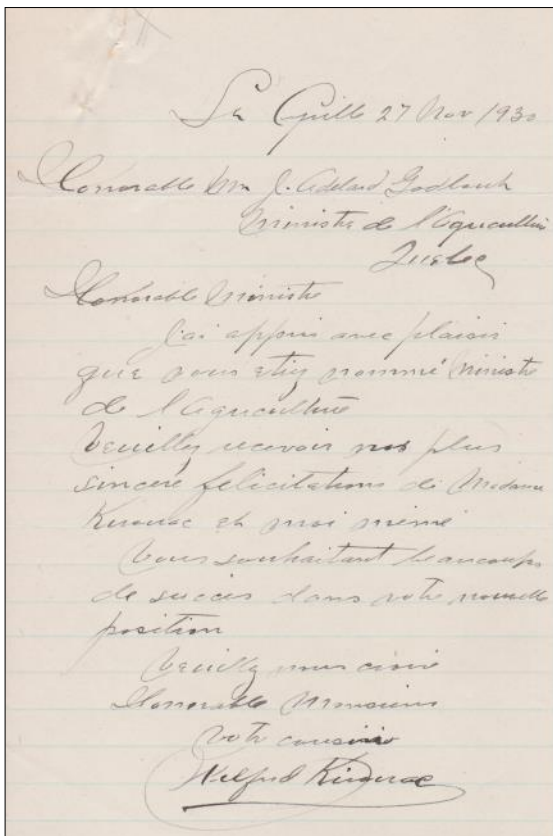 La Grille 27 Nov 1930
Honorable Mr J. Adelard Godbout
Ministre de l'Agriculture
Quebec
Honorable Ministre
J'ai appris avec plaisir
que vous etiez nommé Ministre
de l'Agriculture
Veuillez recevoir nos plus
sincere felicitations de Madame
Kirouac et moi même
Vous souhaitant beaucoups
de succès dans votre nouvelle
position
Veuillez nous croire
Honorable Monsieur
Votre cousin
Wilfrid Kirouac